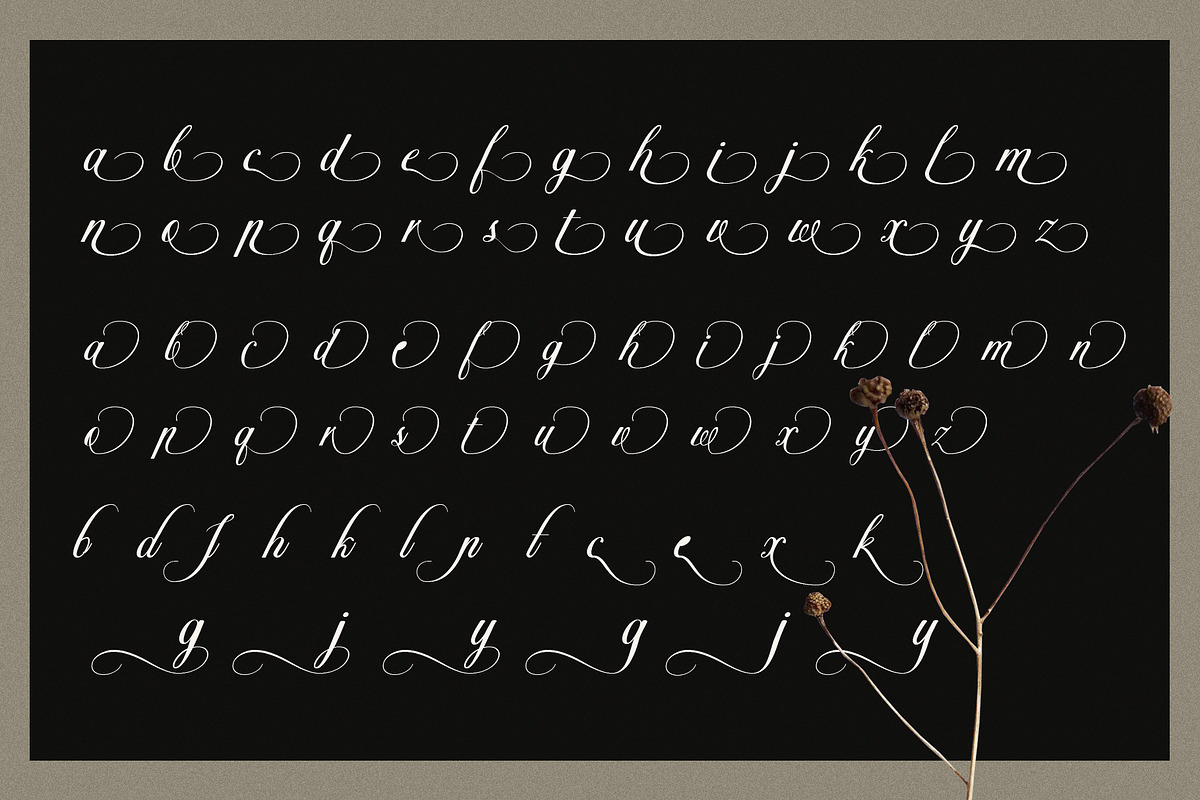 a b c d e f g h i j k l m
n o p q r s t u v w x y z
a b c d e f g h i j k l m n
o p q r s t u v w x y z
b d f h k l p t c e x k
g j y g j y